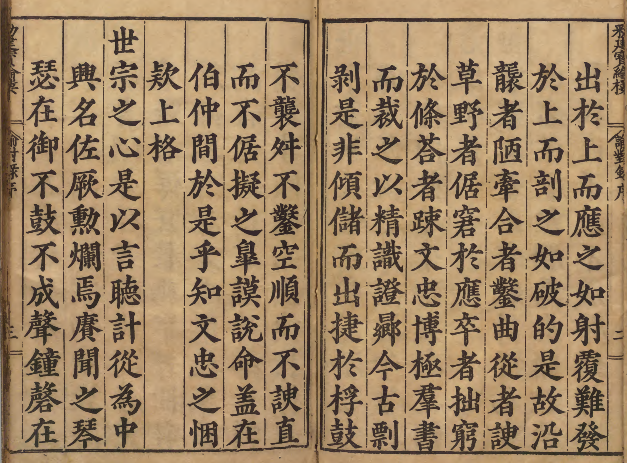 出於上而應之如射覆難發
於上而剖之如破的是故沿
襲者陋牽合者鑿曲從者諛
草野者倨窘於應卒者拙窮
於條荅者踈文忠博極羣書
而裁之以精識證曏今古剽
剝是非傾儲而出捷於桴鼓
不襲舛不鑿空順而不諛直
而不倨擬之臯謨說命盖在
伯仲間於是乎知文忠之悃
欵上格
世宗之心是以言聽計從為中
興名佐厥勲爛焉賡聞之琴
瑟在御不鼓不成聲鐘磬在